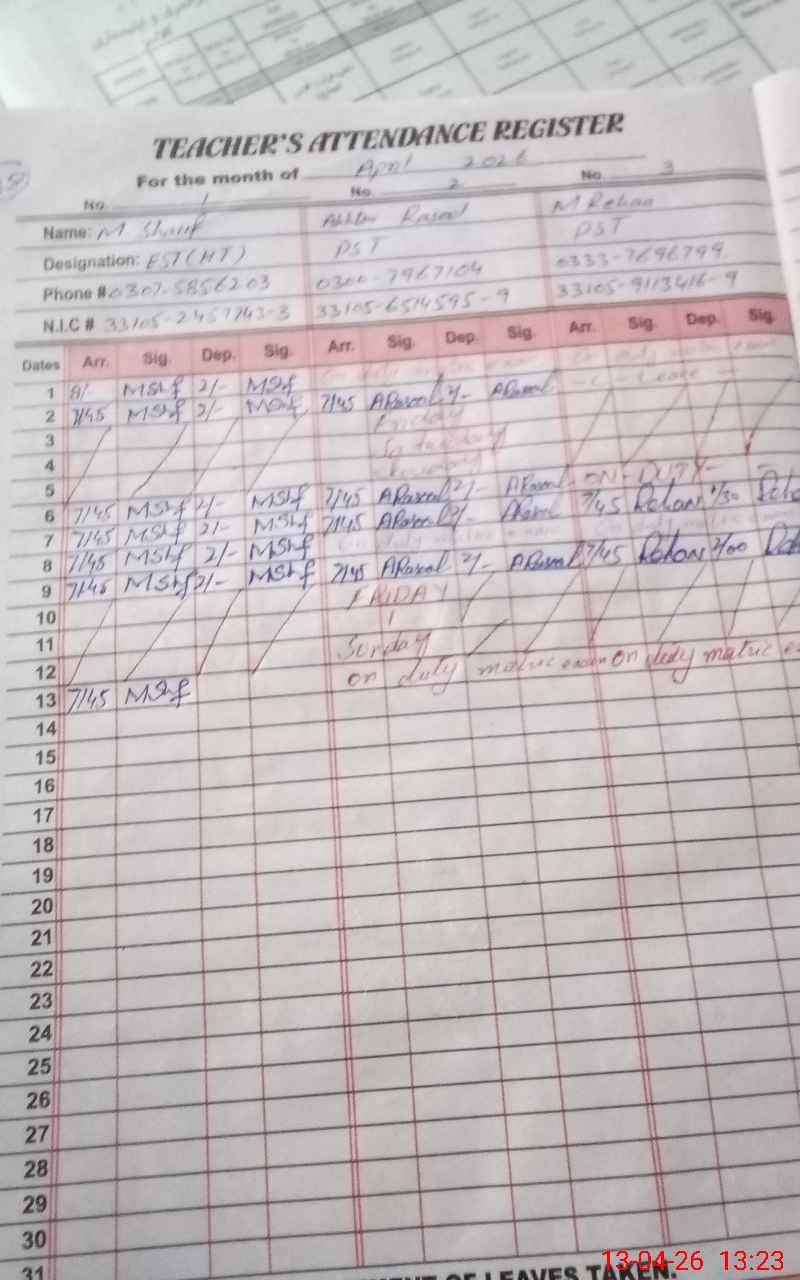 TEACHER'S ATTENDANCE REGISTER
For the month of April 2026
No. 1 No. 2 No. 3
Name: M Sharif Akhtar Rasool M Rehan
Designation: EST(HT) PST PST
Phone # 0307-5856203 0300-7967104 0333-7696799
N.I.C # 33105-2457743-3 33105-6514595-9 33105-9113416-9
Dates Arr. Sig. Dep. Sig. Arr. Sig. Dep. Sig. Arr. Sig. Dep. Sig.
1 8/- MShf 2/- MShf On duty matric exam On duty matric exam
2 7/45 MShf 2/- MShf 7/45 ARasool 2/- ARasool Leave
3 Friday
4 Saturday
5
6 7/45 MShf 2/- MShf 7/45 ARasool 2/- ARasool ON-DUTY-
7 7/45 MShf 2/- MShf 7/45 ARasool 2/- ARasool 7/45 Rehan 1/30
8 7/45 MShf 2/- MShf
9 7/45 MShf 2/- MShf 7/45 ARasool 2/- ARasool 7/45 Rehan 2/00
10 FRIDAY
11
12 Sunday
13 7/45 MShf on duty matric exam On duty matric
14
15
16
17
18
19
20
21
22
23
24
25
26
27
28
29
30
31
OF LEAVES TAKEN.
13-04-26 13:23